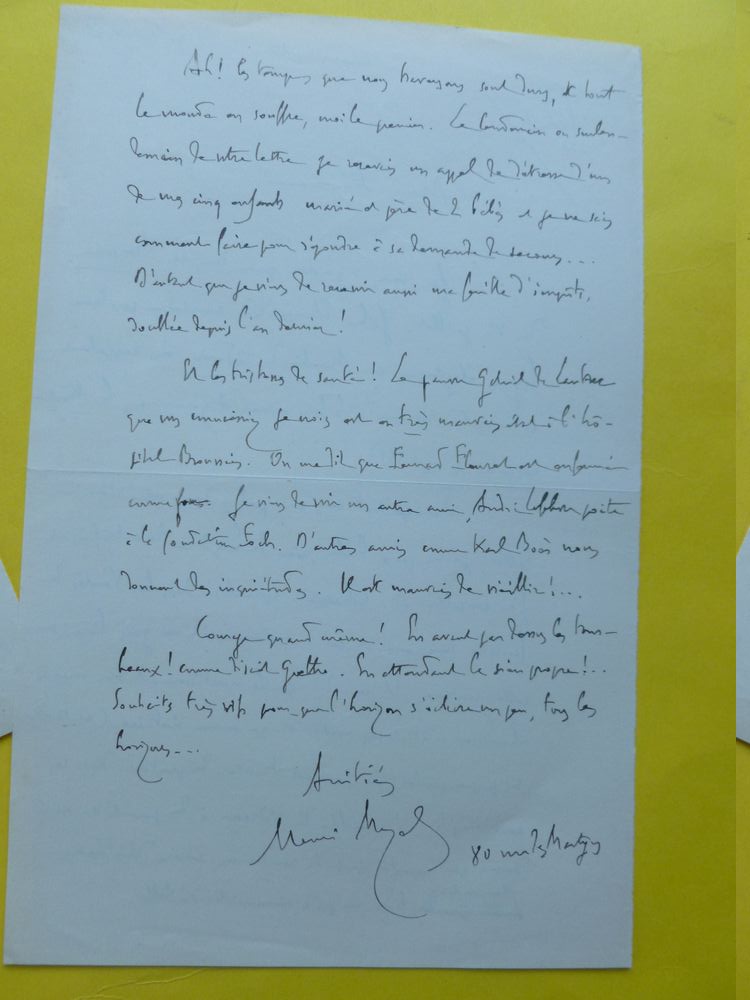 Ah! les temps que nous traversons sont durs, et tout
le monde en souffre, moi le premier. Le lendemain ou surlen-
demain de votre lettre je recevais un appel de détresse d'un
de mes cinq enfants marié et père de 2 bébés et je ne sais
comment faire pour répondre à sa demande de secours...
D'autant que je viens de recevoir aussi ma feuille d'impôts,
doublée depuis l'an dernier!
Et les tristesses de santé! Le pauvre Gabriel de Lautrec
que vous connaissiez je crois est en très mauvais état à l'hô-
pital Broussais. On me dit que Fernand Fleuret est enfermé
comme fou. Je viens de voir un autre ami, André poète
à la fondation Foch. D'autres amis comme Karl Boès nous
donnent des inquiétudes. Il est mauvais de vieillir!...
Courage quand même! En avant par dessus les tom-
beaux! comme disait Goethe. En attendant le sien propre!..
Souhaits très vifs pour que l'horizon s'éclaire un peu, tous les
horizons...
Amitiés
80 rue des Martyrs